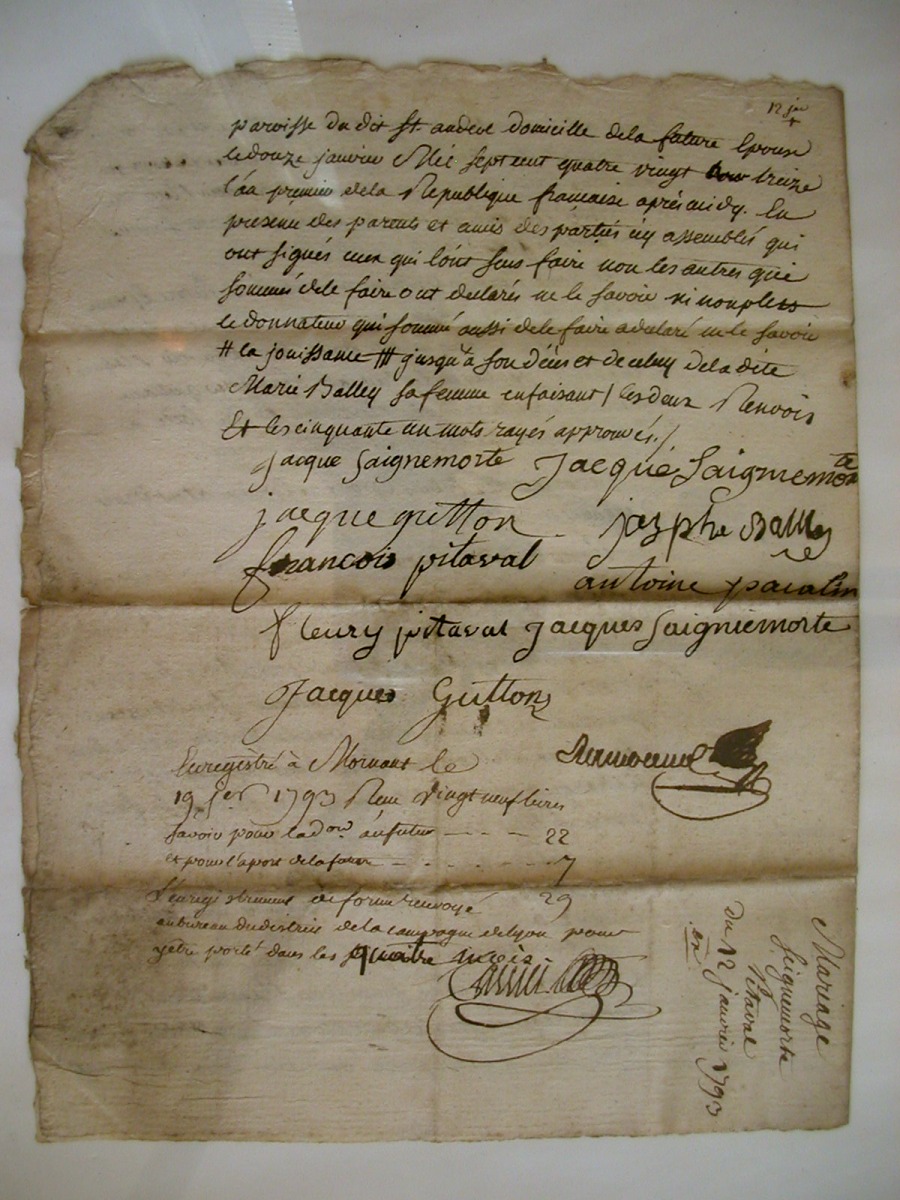 12 jer
paroisse du dit St andeol domicille dela future Epouse
le douze janvier Mil sept cent quatre vingt treize
l'an premier dela Republique francaise apres midy. En
presence des parents et amis des parties icy assemblés qui
ont signés ceux qui l'ont sceu faire non les autres qui
sommés dele faire ont declarés ne le savoir ni non plus
le donnateur qui sommé aussi dele faire a declaré ne le savoir
# la jouissance ## jusqu'à son décès et de celuy dela dite
Marie Balley sa femme en faisant / les deux Renvois
Et les cinquante un mots rayés approuvés. /
jacque Saignemorte Jacque Saignemorte
jacque gutton josephe Balley
francois pitaval
antoine
fleury pitaval Jacques Saigniemorte
Jacques Guttons
Enregistré à Mornant le
19 jer 1793 Reçu vingt neuf livres
savoir pour la don. au futur - - - - 22
et pour l'aport de la future - - - - 7
L'enregistrement en forme renvoyé 29
au bureau du district de la campagne de Lyon pour
y être porté dans les quatre mois.
Mariage
Seignemorte
Pitaval
du 12 janvier 1793